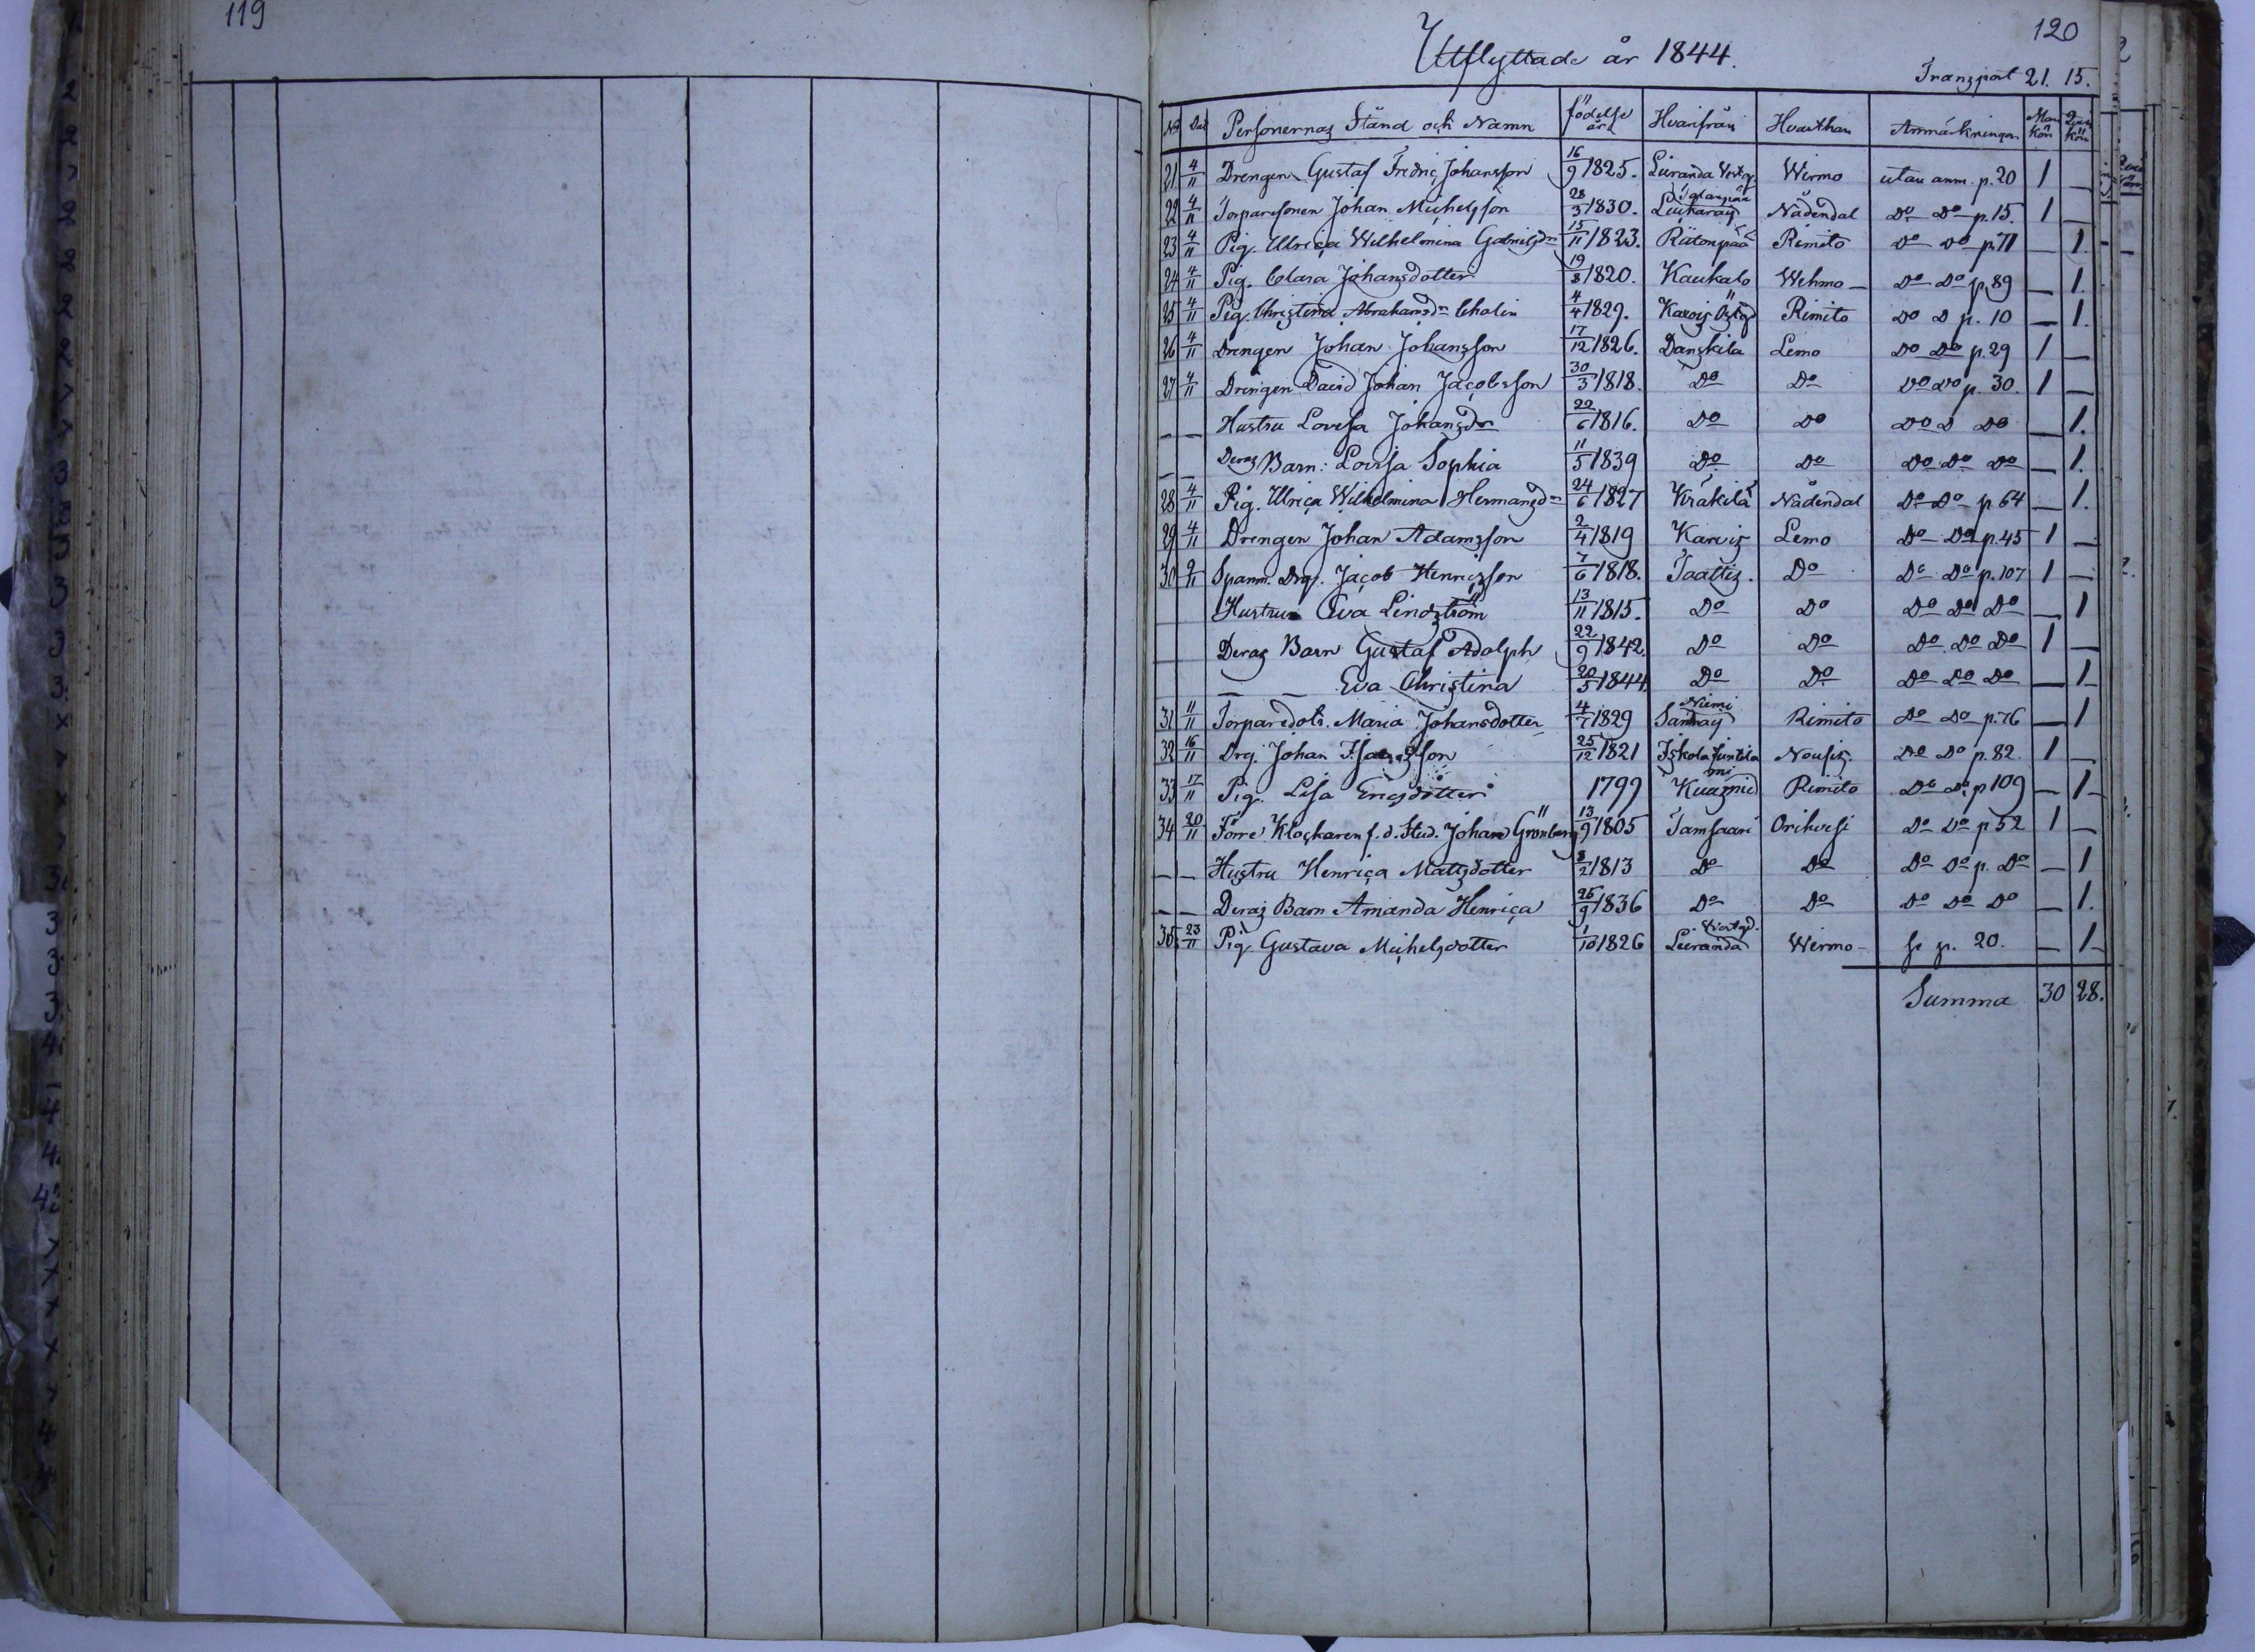 119
120
Utflyttade år 1844.
Transport 21. 15.
No Dat Personernas Stånd och Namn födelse år Hvarifrån Hvarthän Anmärkningar Man kön Qvin kön
21 4/11 Drengen Gustaf Fredric Johansson 16/9 1825. Liiranda Vestg. Wirmo utan anm. p. 20 1 —
22 4/11 Torparesonen Johan Michelsson 28/3 1830. Nådendal Do Do p. 15. 1 —
23 4/11 Pig. Ulrica Wilhelmina Gabrielsdr 15/11 1823. Rimito Do Do p. 71 — 1.
24 4/11 Pig. Clara Johansdotter 19/8 1820. Kaukalo Wehmo — Do Do p. 89 — 1.
25 4/11 Pig. Christina Abrahamsdr Chalin 4/4 1829. Karvis Östg. Rimito Do D p. 10 — 1.
26 4/11 Drengen Johan Johansson 17/12 1826. Danskila Lemo Do Do p. 29 1 —
27 4/11 Drengen David Johan Jacobsson 30/3 1818. Do Do Do Do p. 30. 1 —
— — Hustru Lovisa Johansdr 22/6 1816. Do Do Do D Do — 1.
— — Deras Barn: Lovisa Sophia 11/5 1839 Do Do Do Do Do — 1.
28 4/11 Pig. Ulrica Wilhelmina Hermansdr 24/6 1827 Kråkilä Nådendal Do Do p. 64 — 1.
29 4/11 Drengen Johan Adamsson 2/4 1819 Karvis Lemo Do Do p. 45 1 —
30 9/11 Spanm. Drg. Jacob Henricsson 7/6 1818. Taattis. Do Do Do p. 107 1 —
Hustrun Eva Lindström 13/11 1815. Do Do Do Do Do — 1
Deras Barn Gustaf Adolph 22/9 1842. Do Do Do Do Do 1 —
— — Eva Christina 20/5 1844. Do Do Do Do Do — 1
31 11/11 Torparedotr. Maria Johansdotter 4/7 1829 Niemi Rimito Do Do p. 76 — 1
32 16/11 Drg. Johan Isacsson 25/12 1821 Iskola Juntila Nousis. Do Do p. 82. 1 —
33 17/11 Pig. Lisa Ericsdotter 1799 Rimito Do Do p 109 — 1
34 20/11 Förre Klockaren f. d. Stud. Johan Grönberg 13/9 1805 Tamsaari Orihvesi Do Do p 52 1 —
— — Hustru Henrica Mattsdotter 8/2 1813 Do Do Do Do p. Do — 1
— — Deras Barn Amanda Henrica 25/9 1836 Do Do Do Do Do — 1.
36. 23/11 Pig. Gustava Michelsdotter 1/10 1826 Liiranda Vestgd. Wirmo — se p. 20. — 1
Summa 30 28.